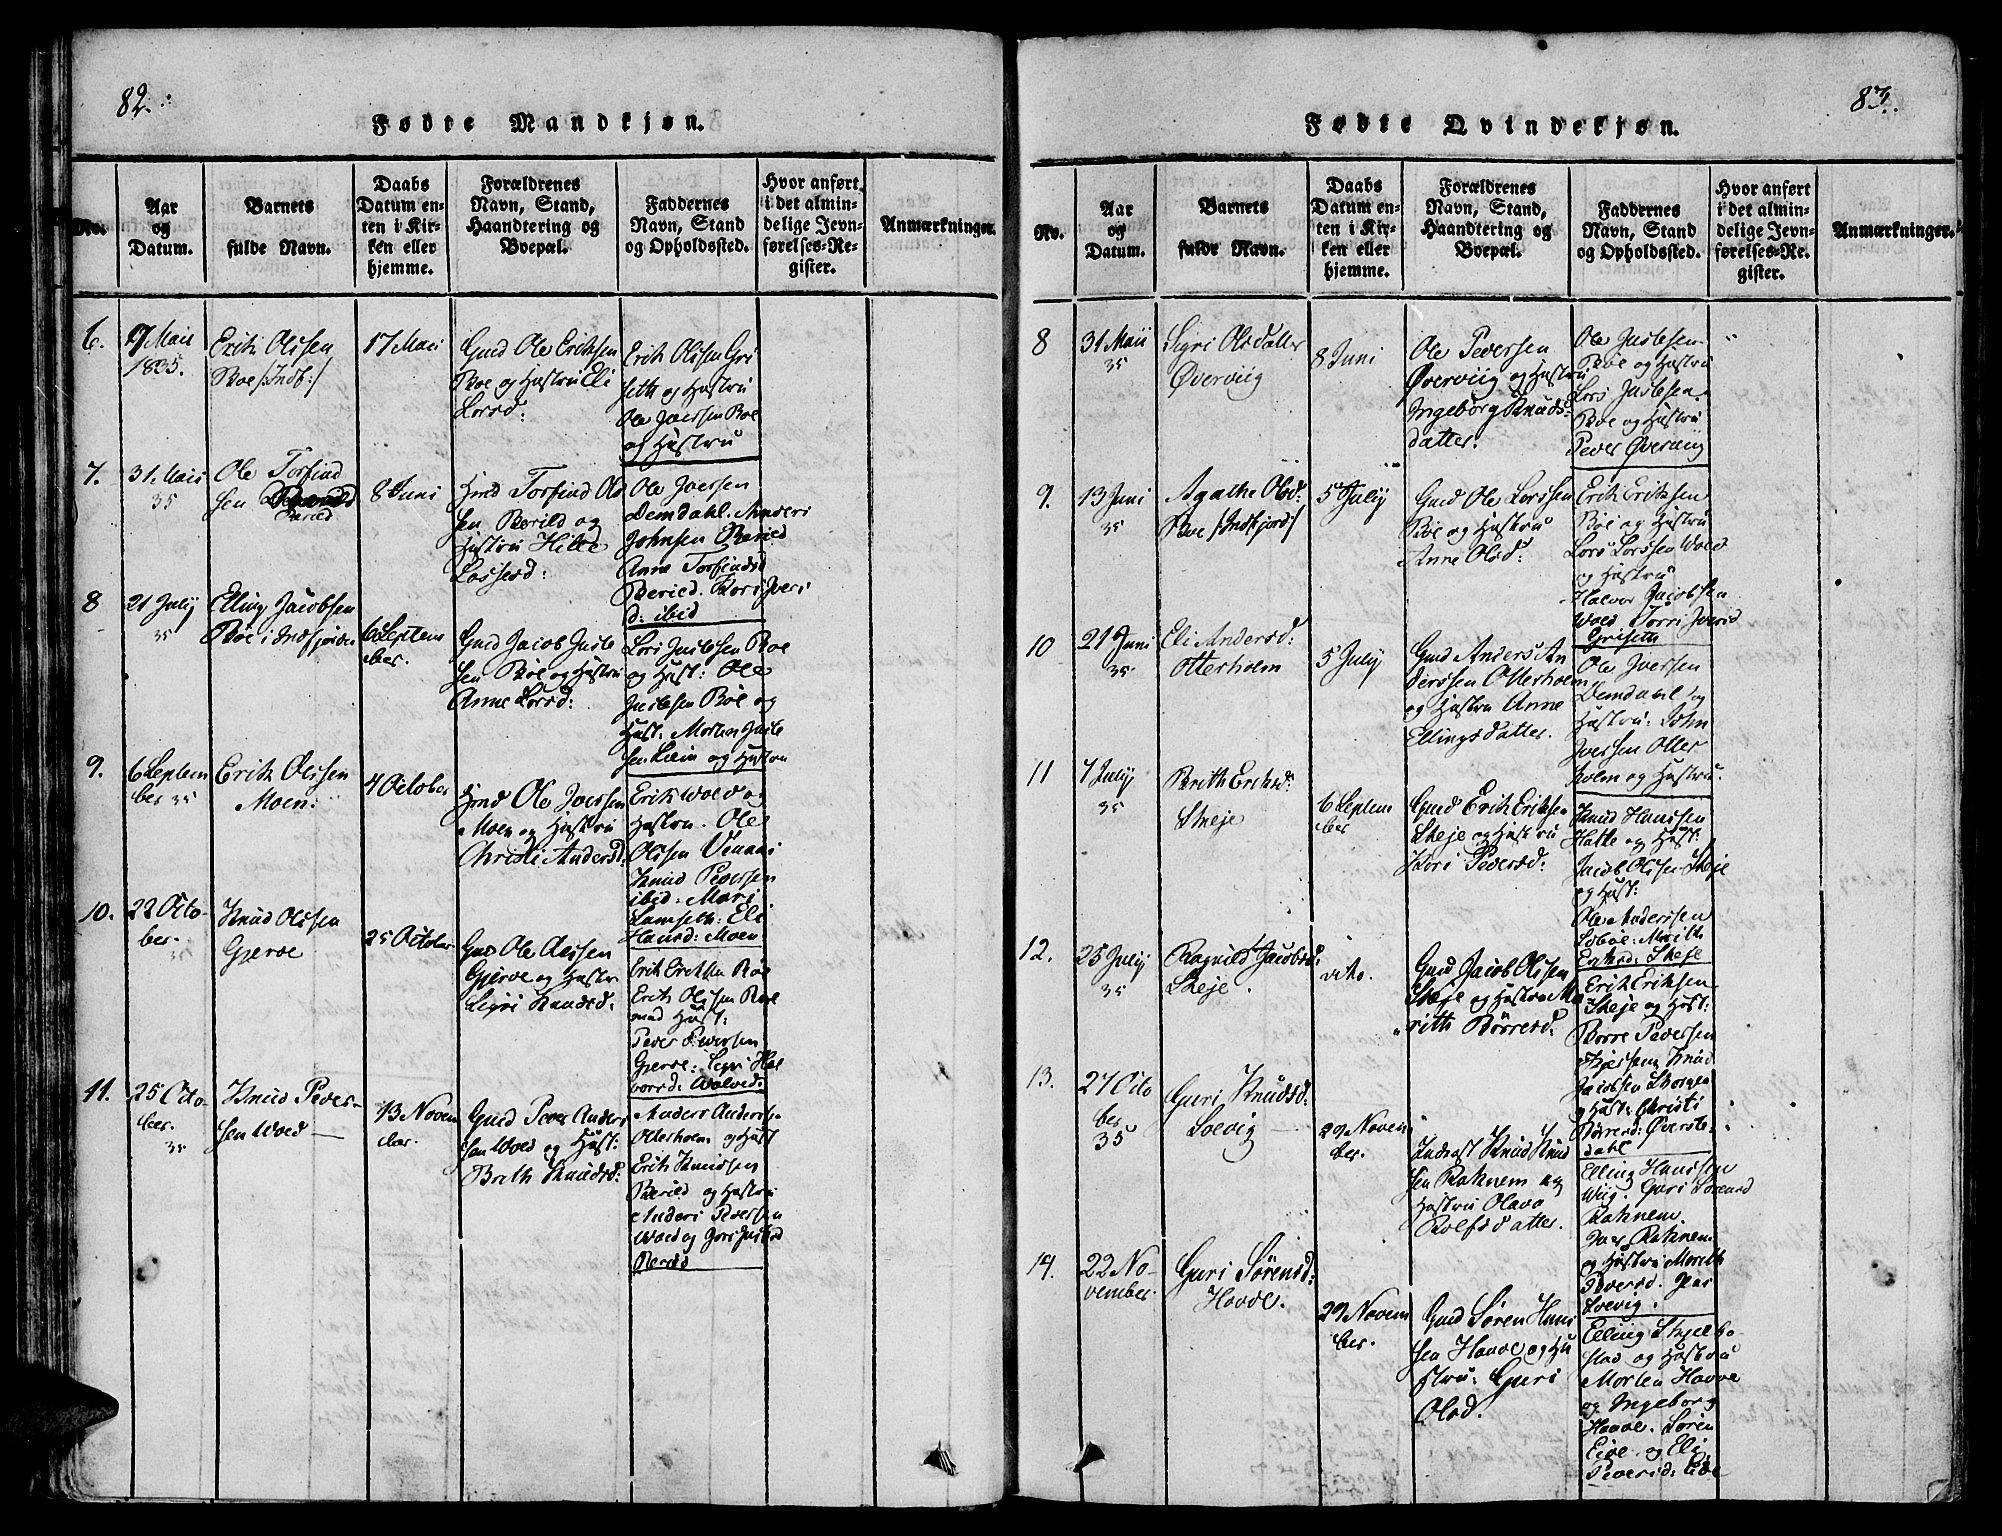 82.
Fødte Mandkjøn.
No.
Aar
og
Datum.
Barnets
fulde Navn.
Daabs
Datum en-
ten i Kir-
ken eller
hjemme.
Forældrenes
Navn, Stand,
Haandtering og
Boepæl.
Faddernes
Navn, Stand
og Opholdssted.
Hvor anført
i det almin-
delige Jevn-
førelses-Re-
gister.
Anmærkninger.
6.
9 Maii
1835.
Erik Olssen
Boe /:Indf:/
17 Maii
Gmd Ole Eriksen
Boe og Hustru Eli
Larsd:
Erik Olssen Gri
seth og Hustru
Ole Iversen Boe
og Hustru
7.
31. Maii
35
Ole Torfind
sen
Beried
8 Juni
Hmd Torfind Ol
sen Berild og
Hustru Hilde
Lassesd:
Ole Iversen
Demdahl. Anders
Johnsen Beried
Anne Torfindsd
Beried. Kari Ivers
d: ibid
8
21 July
35
Elling Jacobsen
Böe i Indfjorden
6 Septem
ber.
Gmd Jacob Juste
sen Böe og Hustru
Anne Larsd:
Lars Justesen Boe
og Hust: Ole
Justesen Böe og
Hust. Morten Juste
sen og Hustru
9.
6 Septem
ber 35
Erik Olssen
Moen.
4 October
Hmd Ole Iversen
Moen og Hustru
Christi Andersd:
Erik Wold og
Hustru. Ole
Olssen Venaas
Knud Pedersen
ibid: Mari
Eli
Hansd: Moen
10.
22 Octo-
ber.
35
Knud Olssen
Gjerde
25 October
Gmd Ole Olssen
Gjerde og Hustr
Sigri Knudsd:
Erik Eriksen Böe
Erik Olssen Boe
med Hust:
Peder Pedersen
Gjerde: Sigri Hal
vorsd: Wolved:
11.
25 Octo-
ber.
35
Knud Peder-
sen Woed
13 Novem
ber.
Gmd Peder Anders
sen Woed og Hust:
Brith Knudsd:
Anders Anderss.
Otterholm og Hust
Erik Knudsen
Beried og Hustru
Anders Pedersen
Woed og
Beried
83.
Fødte Qvindekjøn.
No.
Aar
og
Datum.
Barnets
fulde Navn.
Daabs
Datum en-
ten i Kir-
ken eller
hjemme.
Forældrenes
Navn, Stand,
Haandtering og
Boepæl.
Faddernes
Navn, Stand
og Opholdssted.
Hvor anført
i det almin-
delige Jevn-
førelses-Re-
gister.
Anmærkninger.
8
31 Maii
35
Sigri Olsdatter
Øverviig
8 Juni
Ole Pedersen
Øverviig og Hustru
Ingeborg Knuds-
datter.
Ole Justesen
Böe og Hustru
Lars Justesen
Böe og Hustru
Peder Øverviig
9.
13 Juni
35
Agathe Olsd:
Boe /:Indfjord/
5 July
Gmd Ole Larssen
Böe og Hustru
Anne Olsd:
Erik Eriksen
Böe og Hustru
Lars Larssen Woed
og Hustru
Halvor Jacobsen
Woed Iversd
Griseth
10
21 Juni
35
Eli Andersd:
Otterholm
5 July
Gmd Anders An
derssen Otterholm
og Hustru Anne
Ellingsdatter.
Ole Iversen
Demdahl og
Hustru: John
Iversen Otter
holm og Hustru
11
7 July
35
Brith Eriksd:
Skeje
6 Septem
ber
Gmd Erik Eriksen
Skeje og Hustru
Kari Pedersd:
Knud Hanssen
Hatle og Hust:
Jacob Olssen Skeje
og Hust:
Ole Anderssen
Eriksd: Skeje
12.
25 July
35
Ragnild Jacobsd:
Skeje.
dito.
Gmd Jacob Olssen
Skeje og Hustru Ma
rith Börresd:
Erik Eriksen
Skeje og Hust:
Borre Pedersen
Knud
Jacobsen
og Hust: Christi
Börresd: Øverste-
dahl
13.
27 Octo
ber
35
Guri Knudsd:
Soevig
29 Novem
ber.
Inderst Knud Knud
sen Raknem og
Hustru Olava
Rolfsdatter.
Elling Hanssen
Wiig. Guri Sörensd
Raknem.
Iver Raknem
og Hustru Marith
Pedersd.
Soevig.
14.
22 No-
vember.
Guri Sörensd:
Hovde.
29 Novem
ber.
Gmd Sören Hans
sen Hovde og Hu
stru: Guri
Olsd.
Elling Skjelbo-
stad og Hustru
Morten Hovde
og Ingeborg
Hovde. Sören
Eide og Eli
Pedersd: Eide